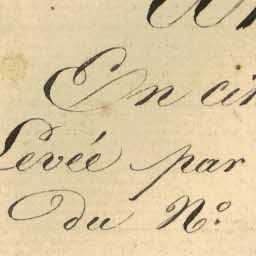 En ci
Levée par
du N.º